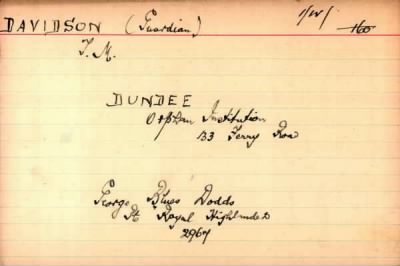 DAVIDSON (Guardian)
J. M.
DUNDEE
Orphan Institution
53 Ferry Row
George Blues Dodds
Pt Royal Highlanders
2967